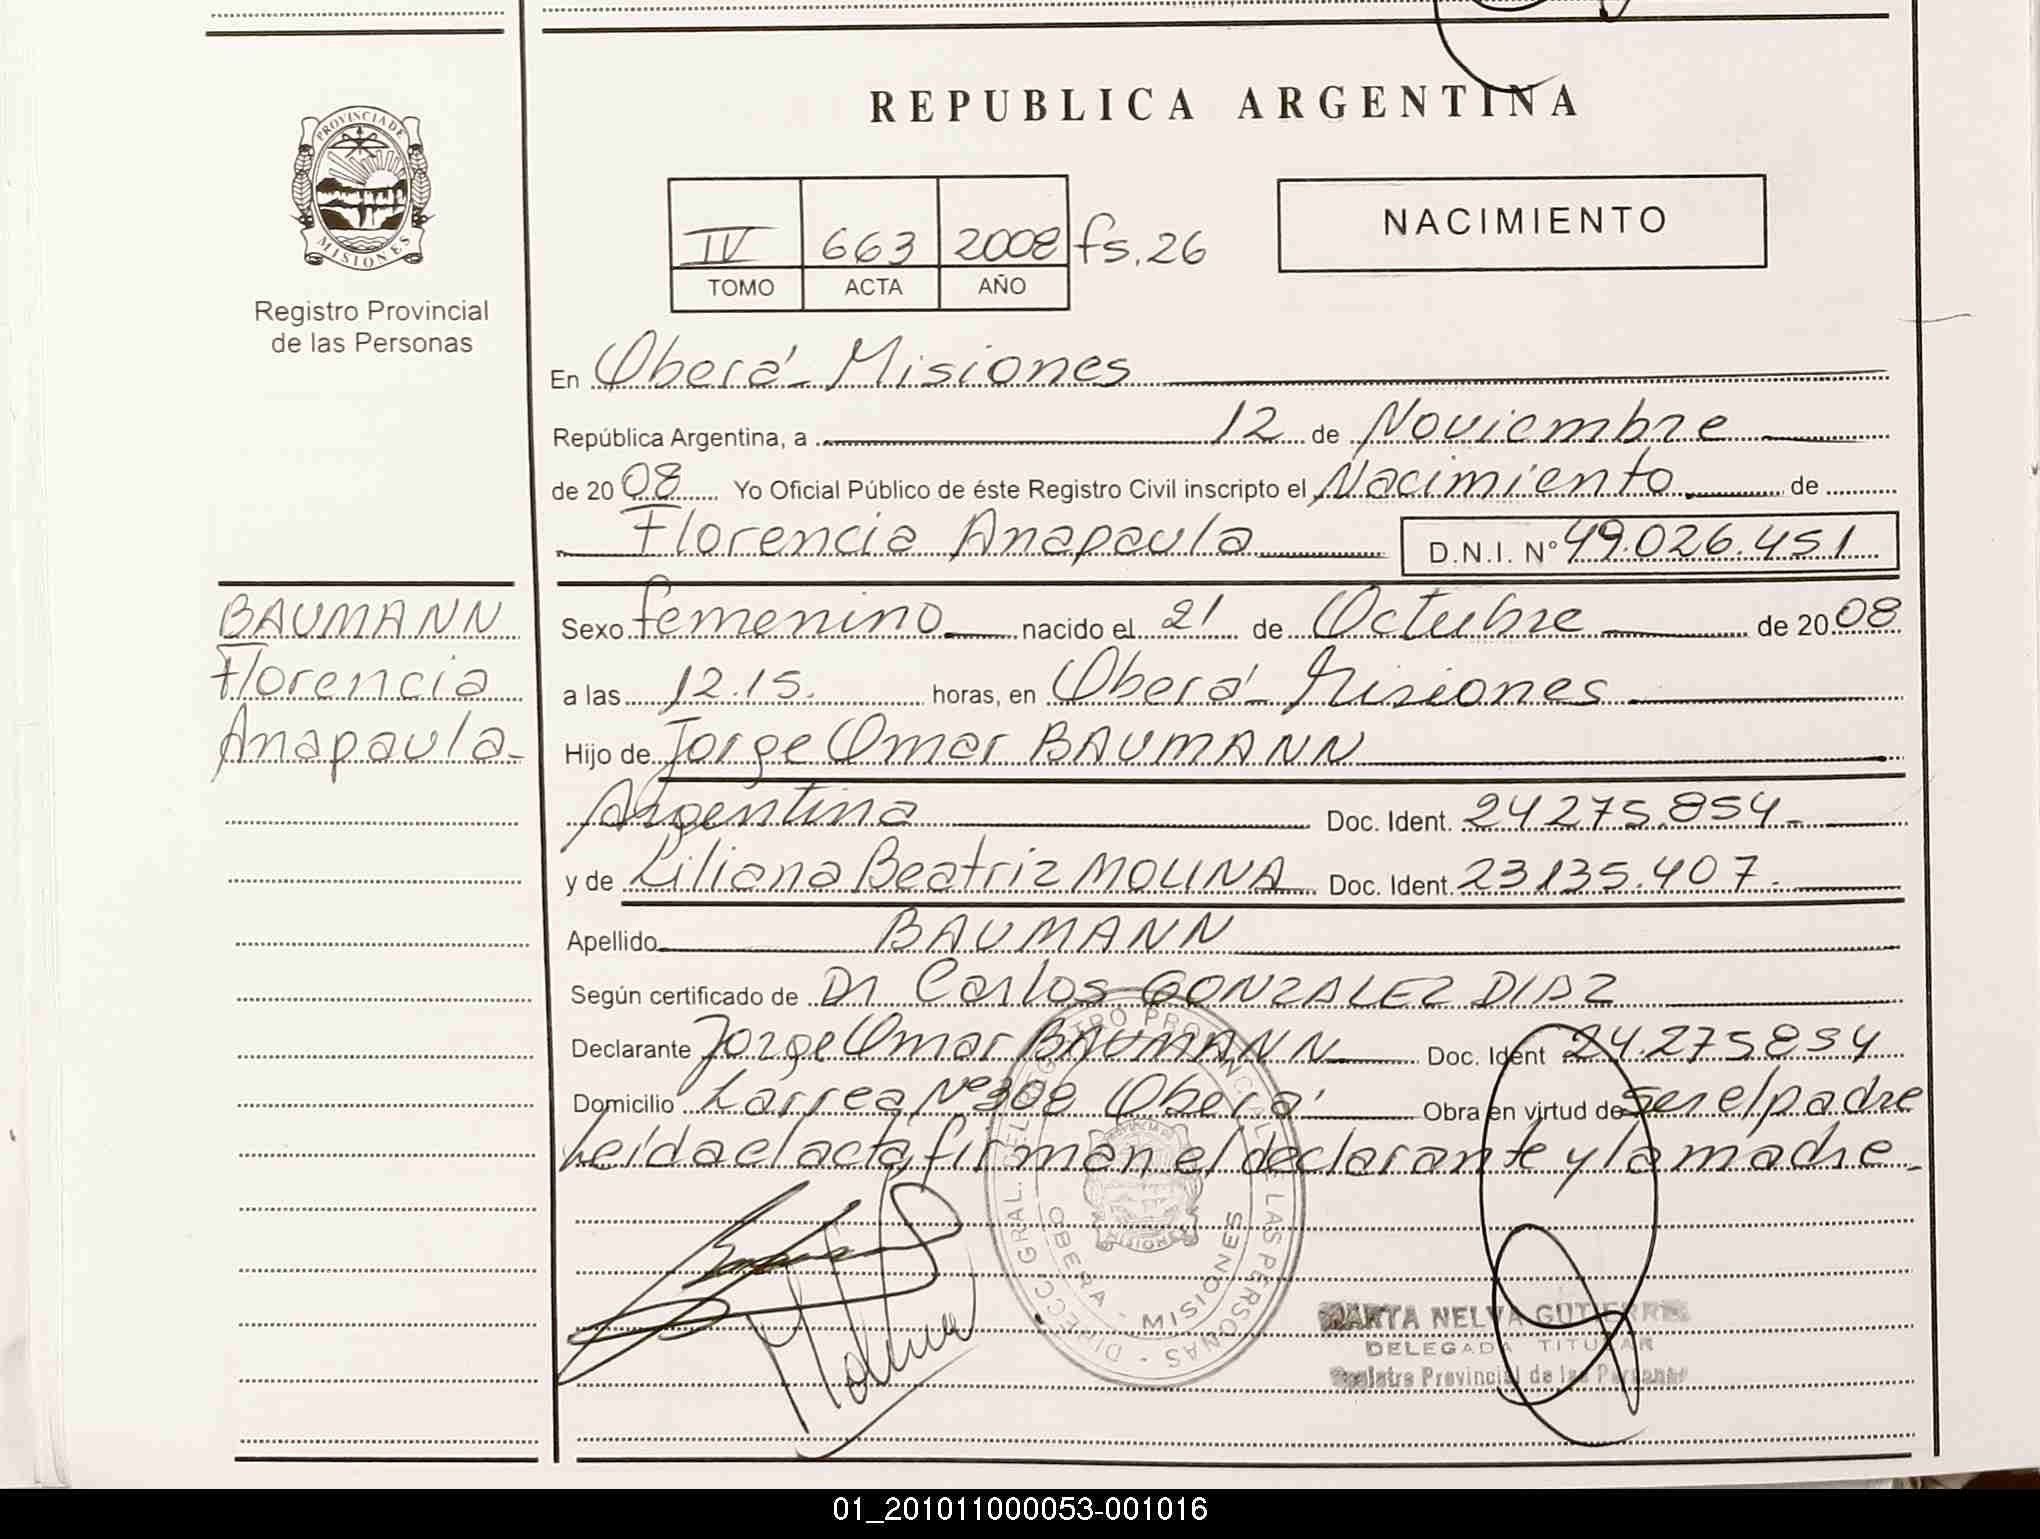 REPUBLICA ARGENTINA
PROVINCIA DE
MISIONES
Registro Provincial
de las Personas
IV 663 2008 fs. 26
TOMO ACTA AÑO
NACIMIENTO
En Oberá - Misiones
República Argentina, a 12 de Noviembre
de 2008 Yo Oficial Público de éste Registro Civil inscripto el Nacimiento de
Florencia Anapaula D.N.I. Nº 49.026.451
BAUMANN
Florencia
Anapaula-
Sexo femenino nacido el 21 de Octubre de 2008
a las 12.15. horas, en Oberá - Misiones
Hijo de Jorge Omar BAUMANN
Argentina Doc. Ident. 24275.854.-
y de Liliana Beatriz MOLINA Doc. Ident. 23135.407.-
Apellido BAUMANN
Según certificado de Dr Carlos GONZALEZ DIAZ
Declarante Jorge Omar BAUMANN Doc. Ident 24.275854
Domicilio Larrea Nº 308 Oberá Obra en virtud de ser el padre
Leída el acta, firman el declarante y la madre.-
Molina
DIRECC. GRAL. DEL REGISTRO PROVINCIAL DE LAS PERSONAS -
OBERA - MISIONES
MISIONES
MARTA NELVA GUTIERREZ
DELEGADA TITULAR
Registro Provincial de las Personas
01_201011000053-001016